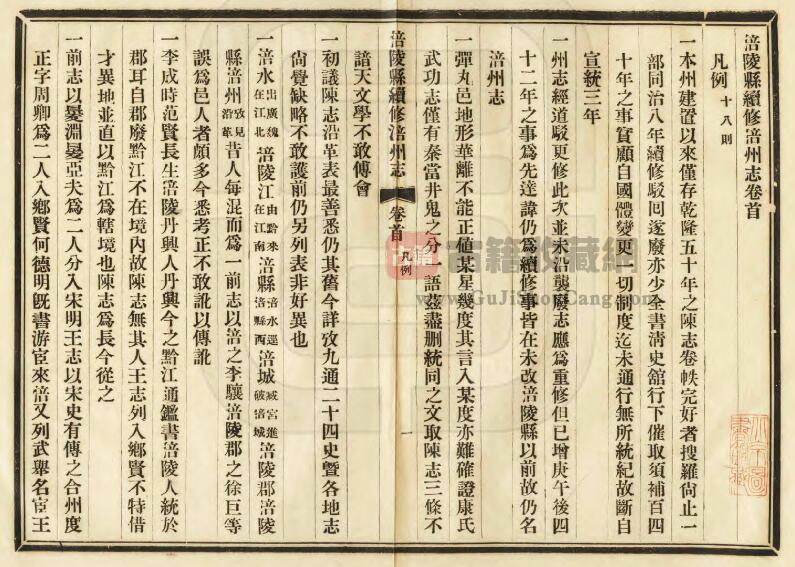 涪陵縣續修涪州志卷首
凡例 十八則
一本州建置以來僅存乾隆五十年之陳志卷帙完好者搜羅尙止一
部同治八年續修駁回遂廢亦少全書淸史舘行下催取須補百四
十年之事實顧自國體變更一切制度迄未通行無所統紀故斷自
宣統三年
一州志經道駁更修此次並未沿襲廢志應爲重修但已增庚午後四
十二年之事爲先達諱仍爲續修事皆在未改涪陵縣以前故仍名
涪州志
一彈丸邑地形華離不能正値某星幾度其言入某度亦難確證康氏
武功志僅有秦當井鬼之分一語茲盡删統同之文取陳志三條不
涪陵縣續修涪州志 卷首 凡例 一
諳天文學不敢傅會
一初議陳志沿革表最善悉仍其舊今詳攷九通二十四史暨各地志
尙覺缺略不敢護前仍另列表非好異也
一涪水出廣魏在江北涪陵江由黔來在江南涪縣涪水逕涪縣西涪城臧宮進破涪城涪陵郡涪陵
縣涪州攷見沿革昔人每混而爲一前志以涪之李驤涪陵郡之徐巨等
誤爲邑人者頗多今悉考正不敢訛以傳訛
一李成時范賢長生涪陵丹興人丹興今之黔江通鑑書涪陵人統於
郡耳自郡廢黔江不在境內故陳志無其人王志列入鄕賢不特借
才異地並直以黔江爲轄境也陳志爲長今從之
一前志以㬊淵㬊亞夫爲二人分入宋明王志以宋史有傳之合州度
正字周卿爲二人入鄕賢何德明旣書游宦來涪又列武舉名宦王
古籍收藏網
www.GuJiShouCang.com